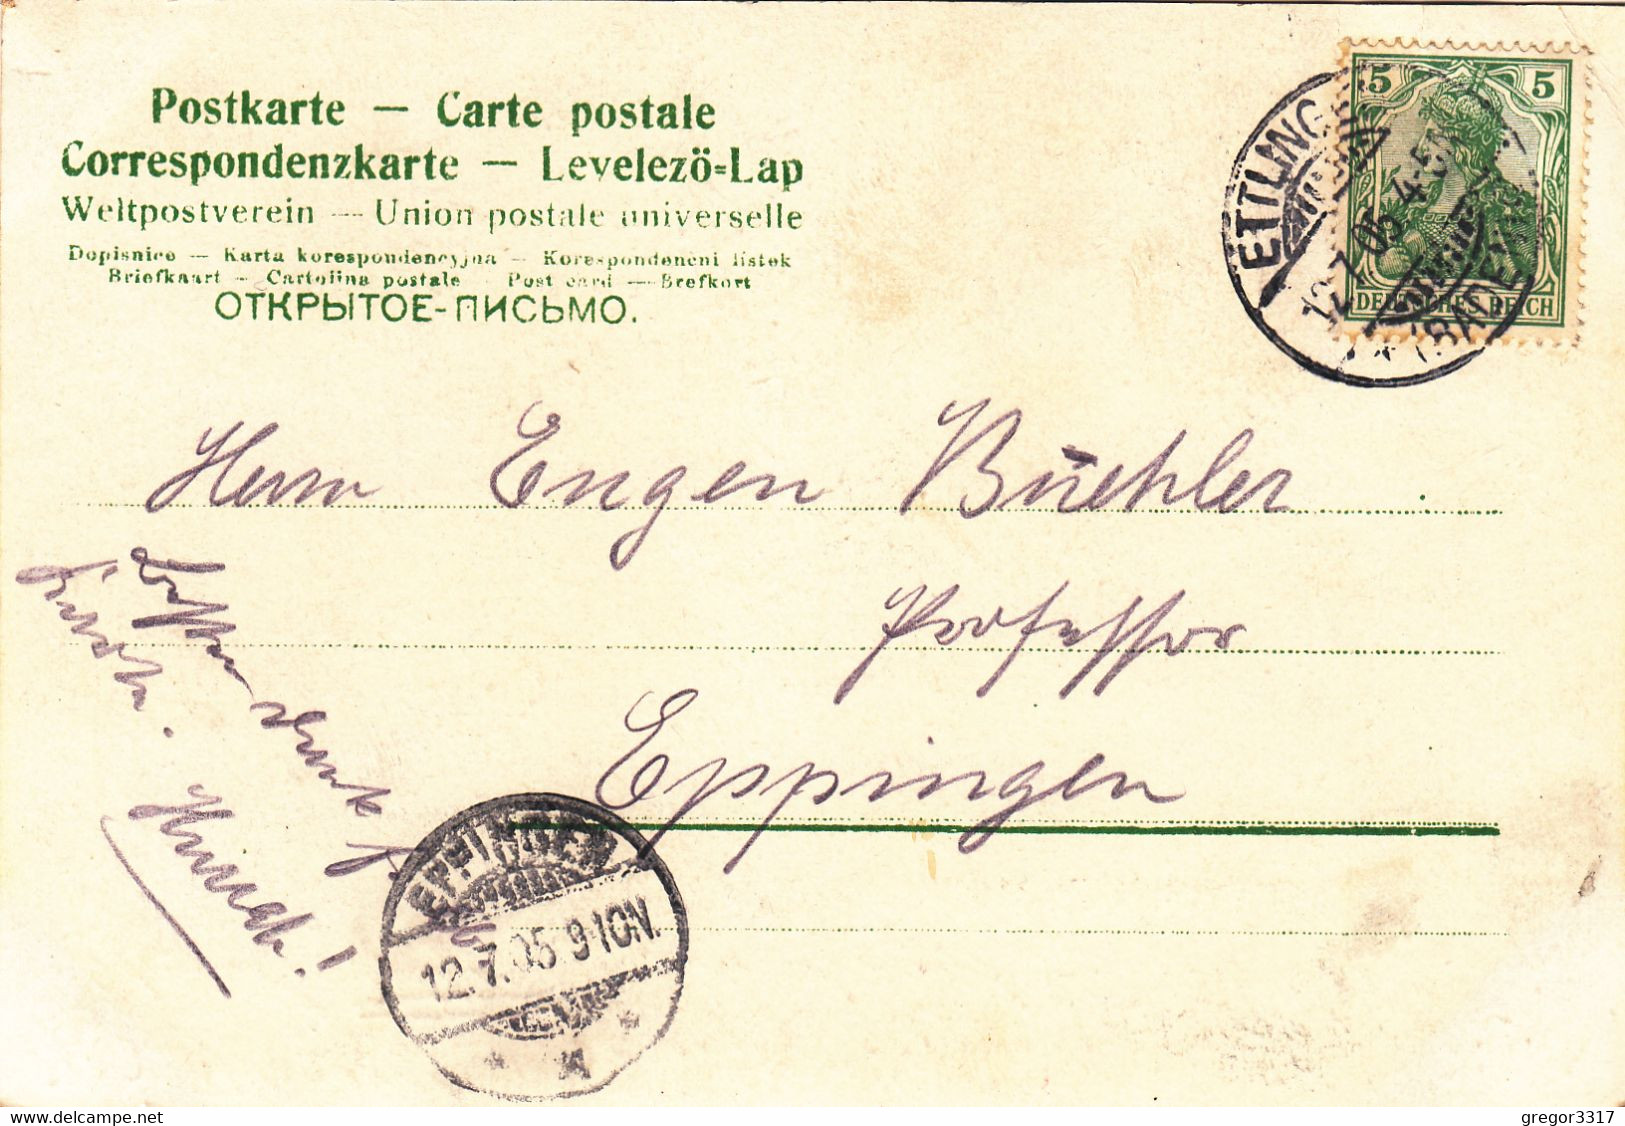 Postkarte — Carte postale
Correspondenzkarte — Levelező-Lap
Weltpostverein — Union postale universelle
Dopisnice — Karta korespondencyjna — Korespondenční lístek
Briefkaart — Cartolina postale — Post card — Brefkort
ОТКРЫТОЕ-ПИСЬМО.
5 5
DEUTSCHES REICH
ETTLINGEN
12.7.05 4-5N
(BADEN)
Herrn Eugen Buehler
Professor
Eppingen
Besten Dank f
Karte.
EPPINGEN
12.7.05 9-10N.
delcampe.net
gregor3317